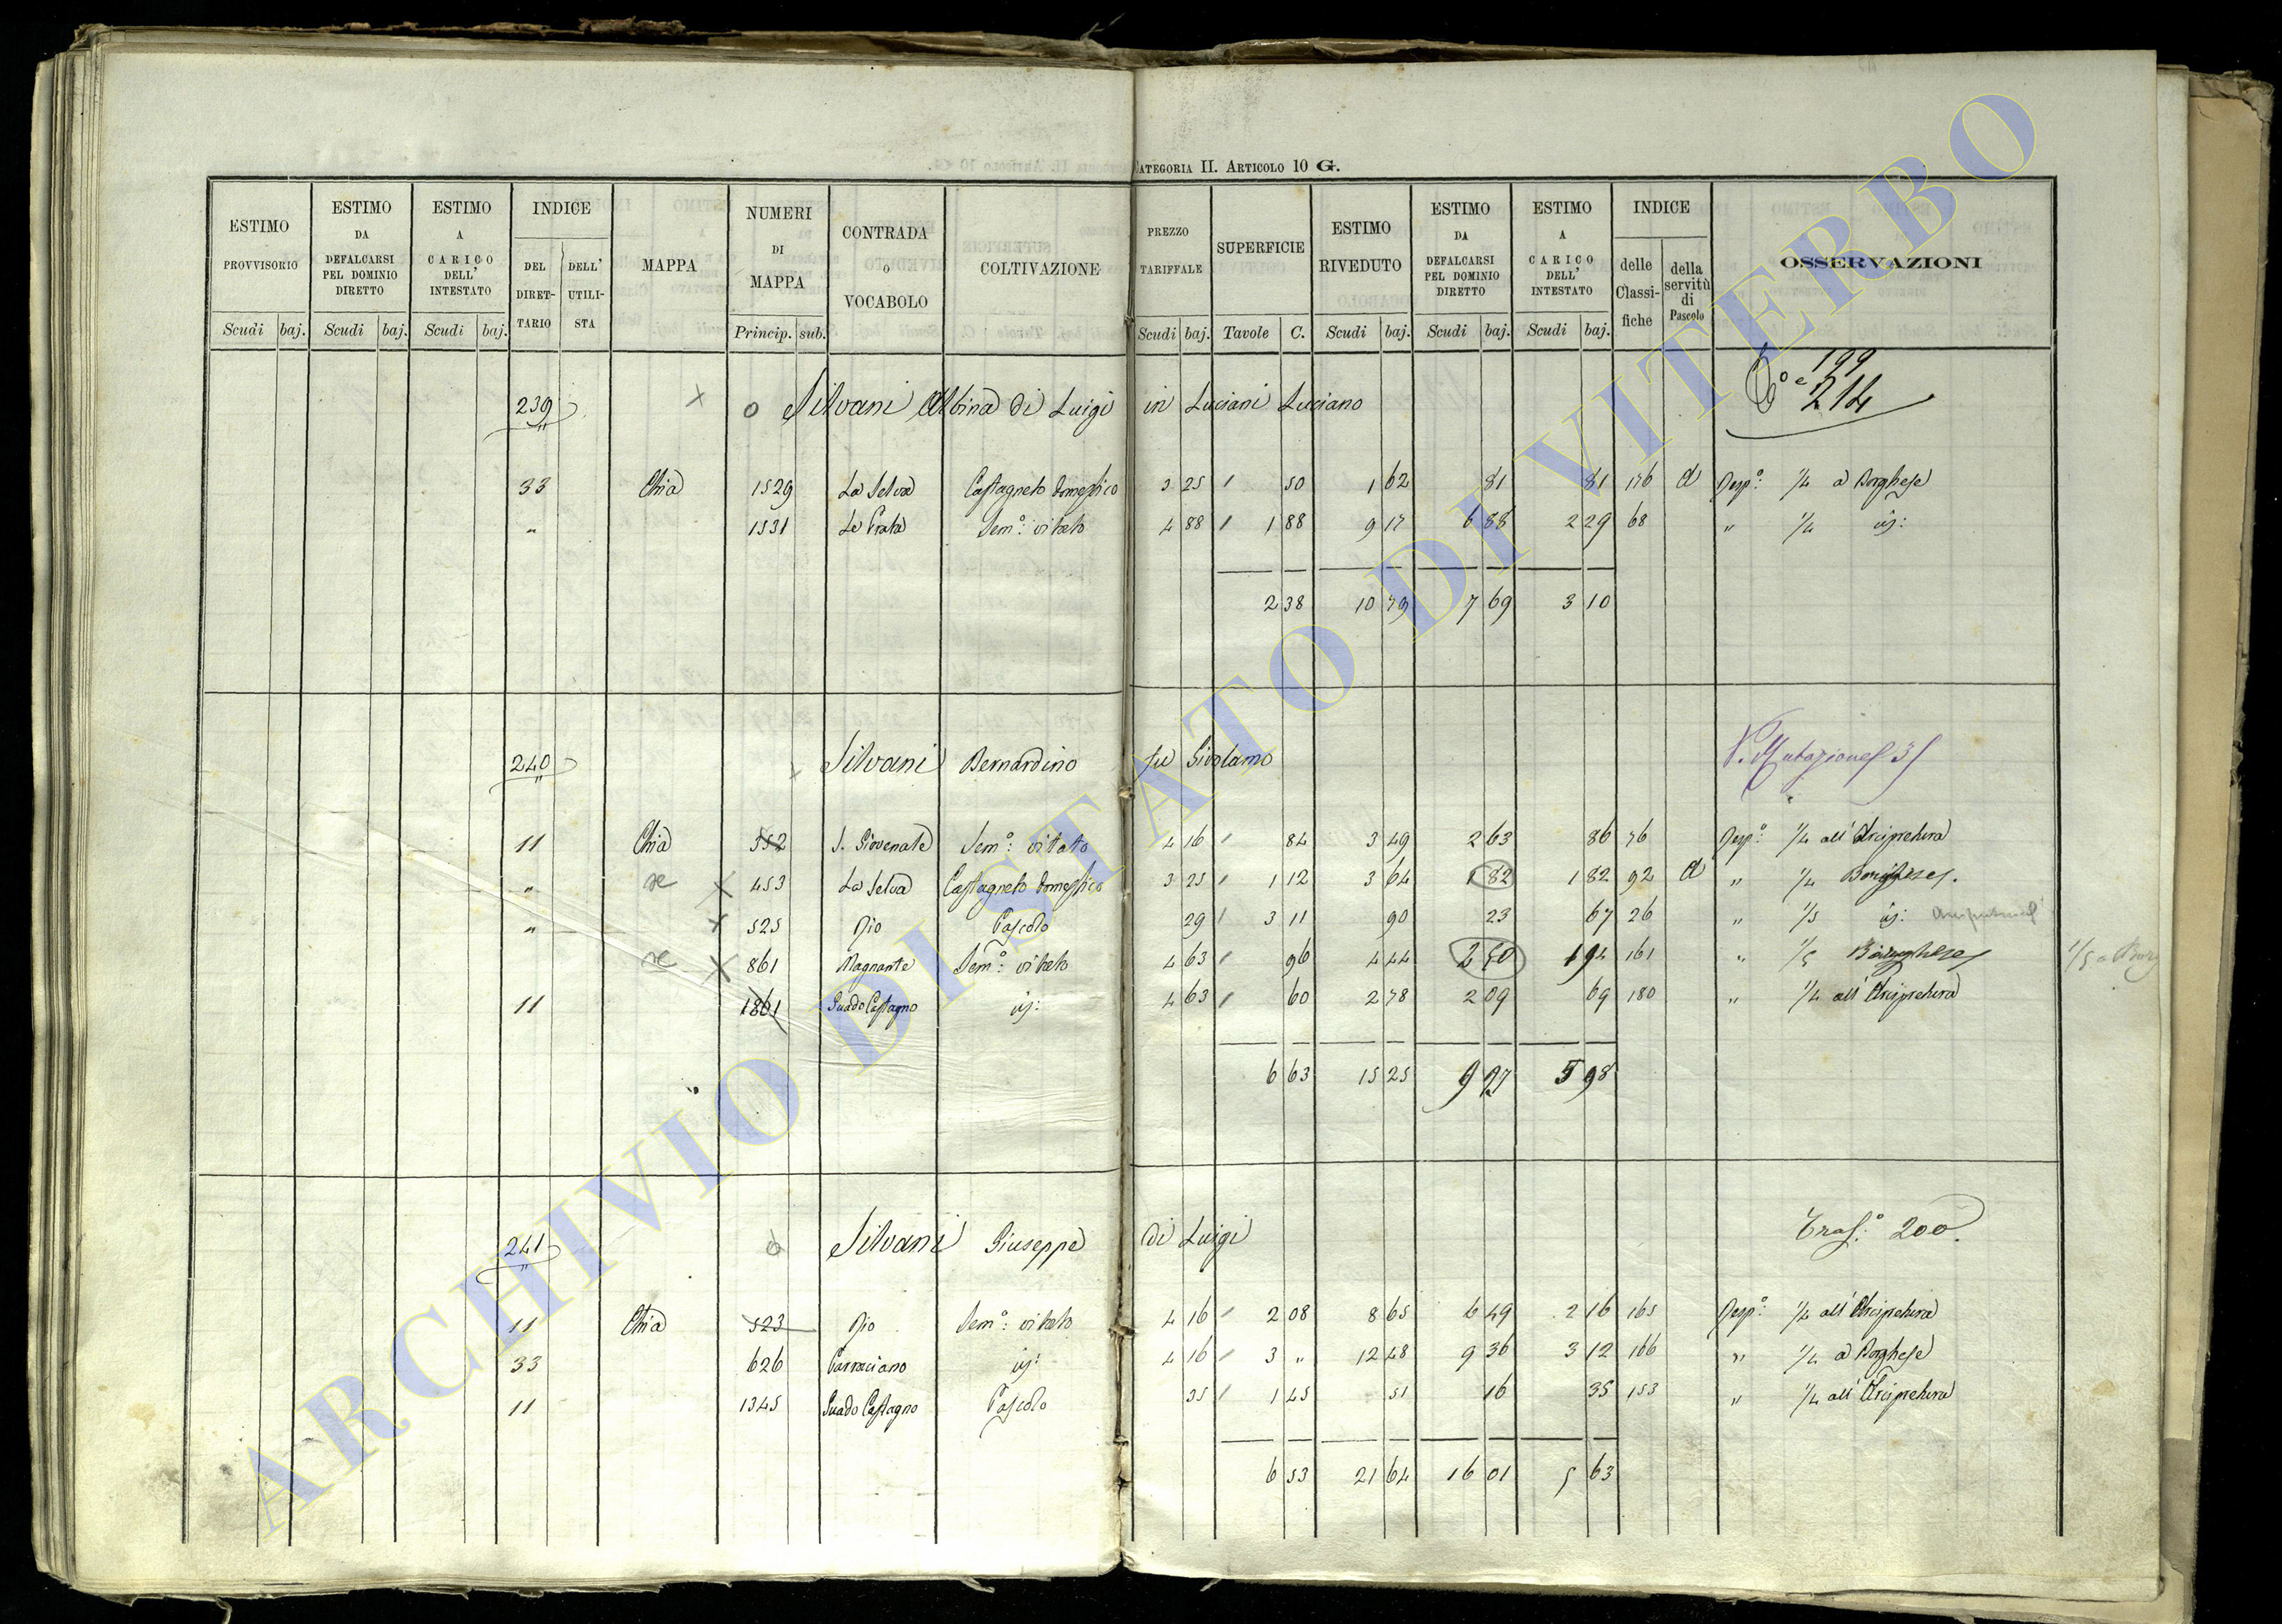 CATEGORIA II. ARTICOLO 10 G.
ESTIMO PROVVISORIO Scudi baj. ESTIMO DA DEFALCARSI PEL DOMINIO DIRETTO Scudi baj. ESTIMO A CARICO DELL' INTESTATO Scudi baj. INDICE DEL DIRET-TARIO DELL' UTILI-STA MAPPA NUMERI DI MAPPA Princip. sub. CONTRADA o VOCABOLO COLTIVAZIONE PREZZO TARIFFALE Scudi baj. SUPERFICIE Tavole C. ESTIMO RIVEDUTO Scudi baj. ESTIMO DA DEFALCARSI PEL DOMINIO DIRETTO Scudi baj. ESTIMO A CARICO DELL' INTESTATO Scudi baj. INDICE delle Classi-fiche della servitù di Pascolo OSSERVAZIONI
199
239 o Silvani Albina di Luigi in Luciani Luciano 214
33 Chia 1529 La Selva Castagneto domestico 3 25 50 1 62 81 81 176 d Resp.º 1/4 a Borghese
" 1531 Le Prata Sem.º vitato 4 88 1 88 9 17 6 88 2 29 68 " 1/4 id:
2 38 10 79 7 69 3 10
240 Silvani Bernardino fu Girolamo V. Mutazione 31
11 Chia 552 S. Giovenale Sem.º vitato 4 16 84 3 49 2 63 86 76 Resp.º 1/4 all'Arcipretura
" 453 La Selva Castagneto domestico 3 25 1 12 3 64 1 82 1 82 92 d " 1/4 Borghese
" 525 Rio Pascolo 29 3 11 90 23 67 26 " 1/5 id:
861 Magnante Sem.º vitato 4 63 96 4 44 2 50 1 94 161 " 1/5 Borghese 1/5 a Borg
11 1861 Guado Castagno id: 4 63 60 2 78 2 09 69 180 " 1/4 all'Arcipretura
6 63 15 25 9 27 5 98
241 Silvani Giuseppe di Luigi Tras.º 200
11 Chia 523 Rio Sem.º vitato 4 16 2 08 8 65 6 49 2 16 165 Resp.º 1/4 all'Arcipretura
33 626 Carraciano id: 4 16 3 " 12 48 9 36 3 12 166 " 1/4 a Borghese
11 1345 Guado Castagno Pascolo 35 1 45 51 16 35 153 " 1/4 all'Arcipretura
6 53 21 64 16 01 5 63
ARCHIVIO DI STATO DI VITERBO